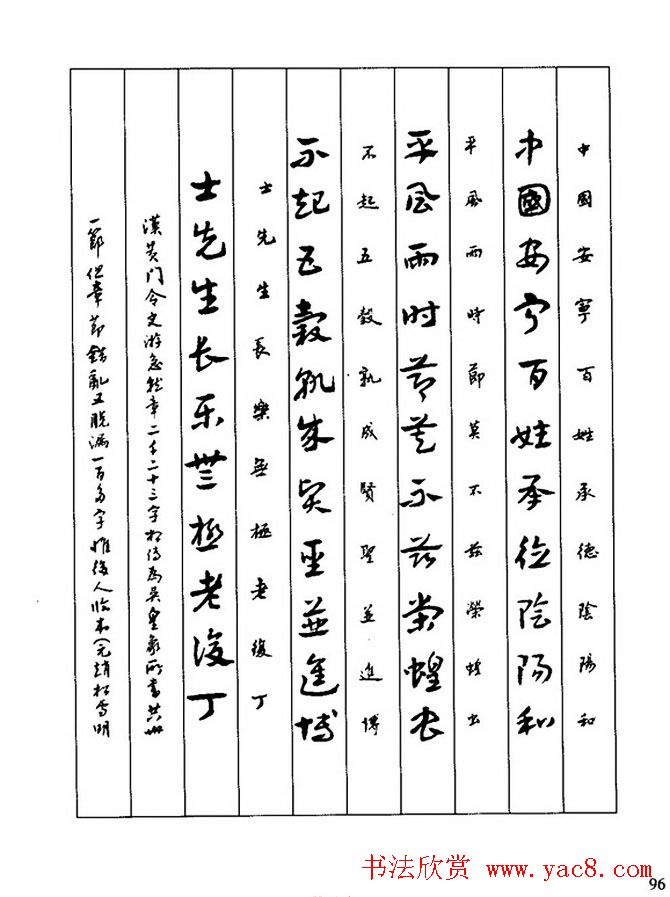 中國安寧百姓承德陰陽和
中國安寧百姓承德陰陽和
平風雨時節莫不茲榮蝗虫
平風雨时節莫不茲榮蝗虫
不起五穀孰成賢聖並進博
不起五穀孰成賢聖並進博
士先生長樂無極老復丁
士先生长乐無極老復丁
漢黄门令史游急就章二千二十三字相传為吴皇象所書共卅
一節但章節錯亂又脱漏一百多字惟後人临本(元趙松雪明
书法欣赏 www.yac8.com
96